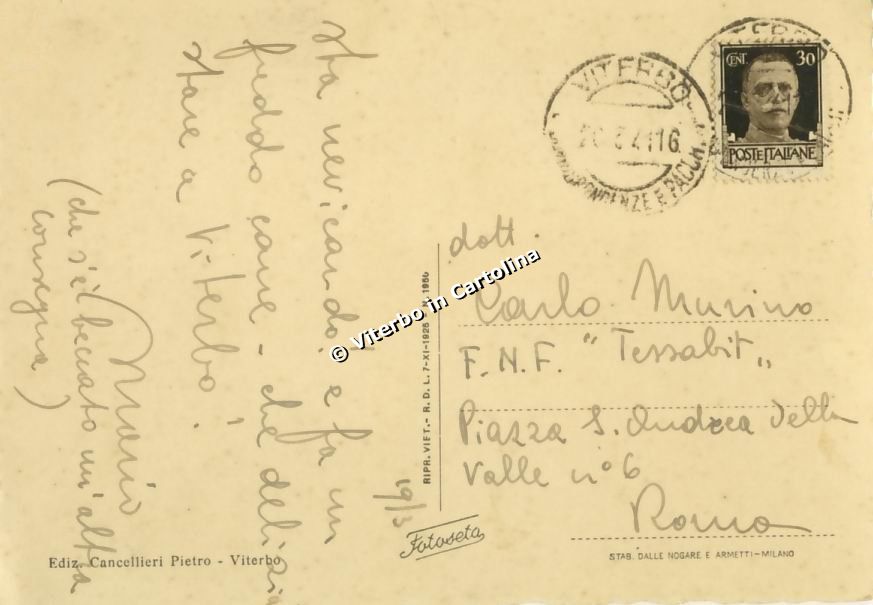 sta nevicando. e fa un
freddo cane - che delizia
stare a Viterbo!
Mario
(che s'è beccato un'altra
consegna)
19/3
Ediz. Cancellieri Pietro - Viterbo
© Viterbo in Cartolina
RIPR. VIET. - R. D. L. 7-XI-1925 - N. 1950
Fotoseta
VITERBO
41 16
CORRISPONDENZE E PACCHI
CENT. 30
POSTE ITALIANE
dott.
Carlo Murino
F.N.F. "Tessabit"
Piazza S. Andrea della
Valle n° 6
Roma
STAB. DALLE NOGARE E ARMETTI - MILANO